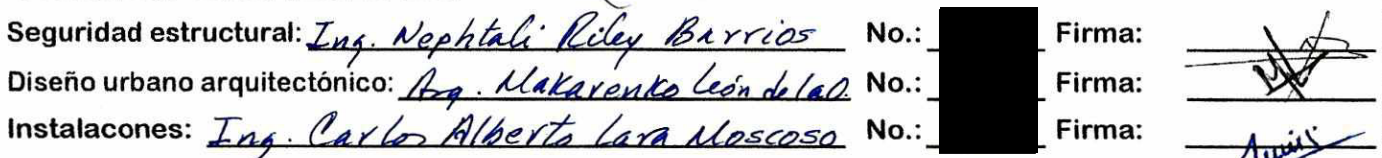 Seguridad estructural: Ing. Nephtali Riley Barrios No.: Firma:
Diseño urbano arquitectónico: Arq. Makarenko León de la O. No.: Firma:
Instalacones: Ing. Carlos Alberto Lara Moscoso No.: Firma: